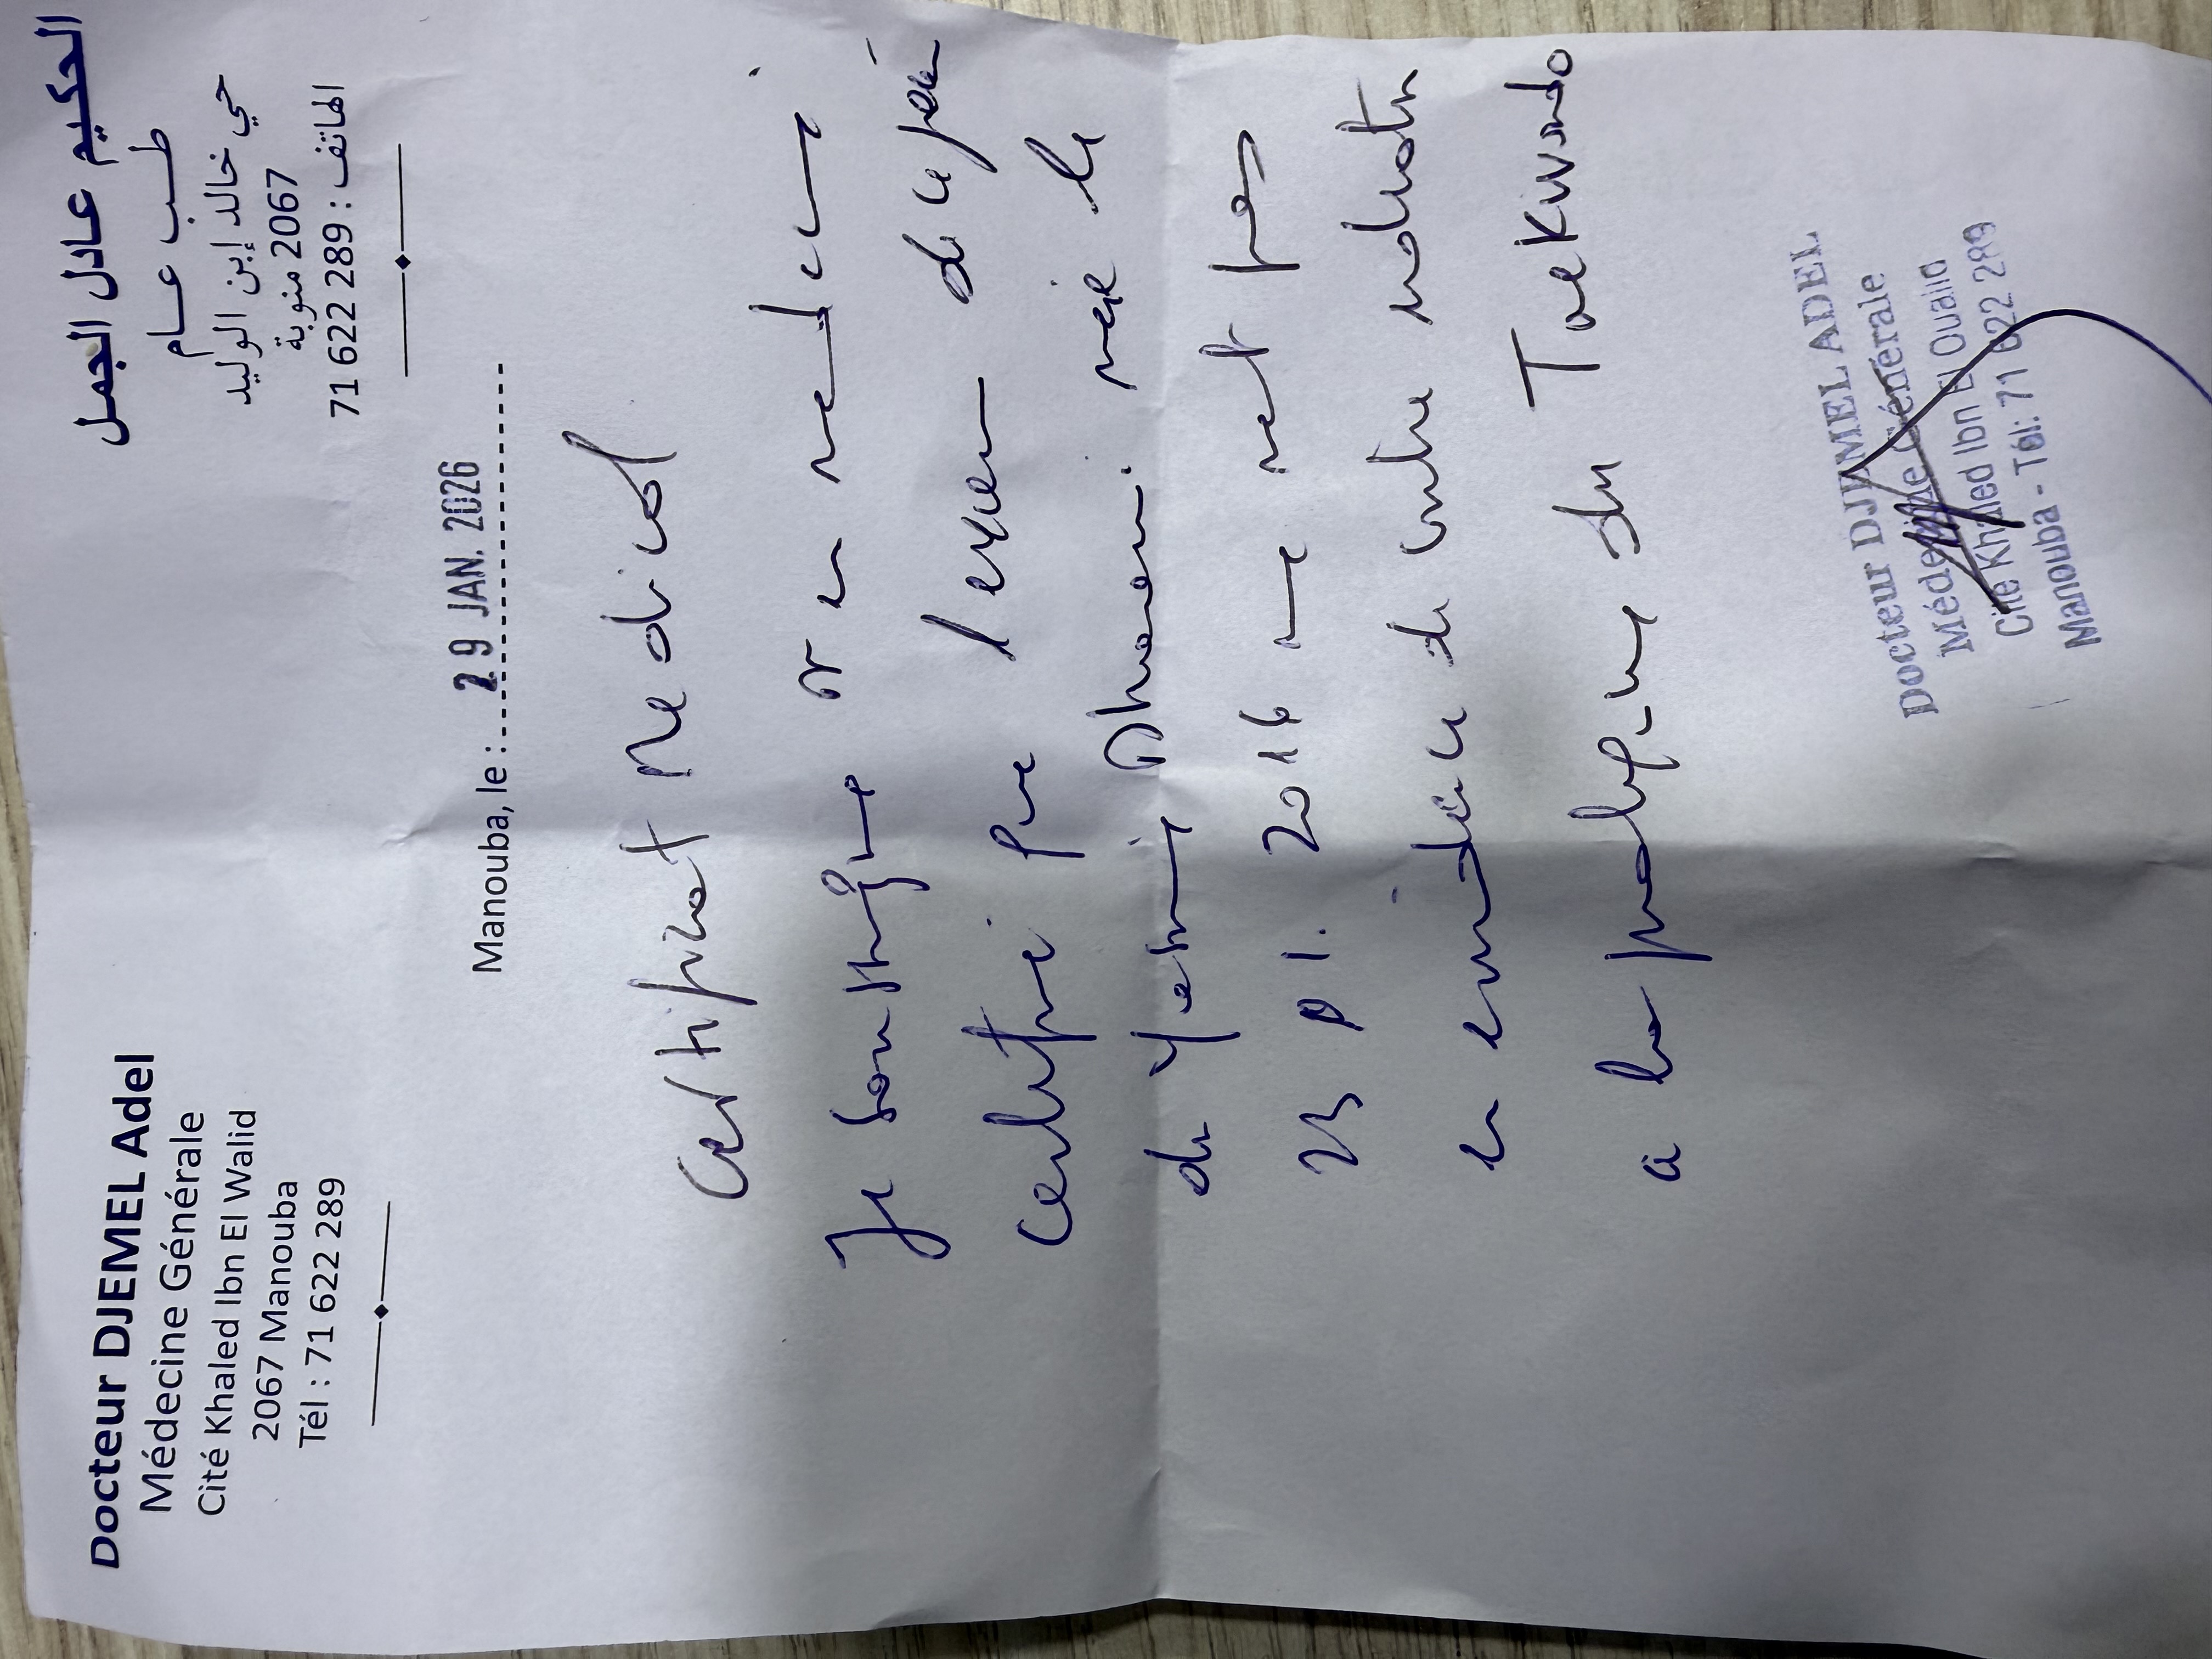 Docteur DJEMEL Adel
Médecine Générale
Cité Khaled Ibn El Walid
2067 Manouba
Tél : 71 622 289
الحكيم عادل الجمل
طب عام
حي خالد إبن الوليد
2067 منوبة
الهاتف : 289 622 71
Manouba, le : 29 JAN. 2026
Certificat Medical
Je soussigné medecin
certifie que l'examen de ce jour
de Yasmin Dhaoui née le
23 01. 2016 ne met pas
en evidence de contre indication
a la pratique du Taekwondo
Docteur DJEMEL ADEL
Médecine Générale
Cité Khaled Ibn El Oualid
Manouba - Tél: 71 622 289